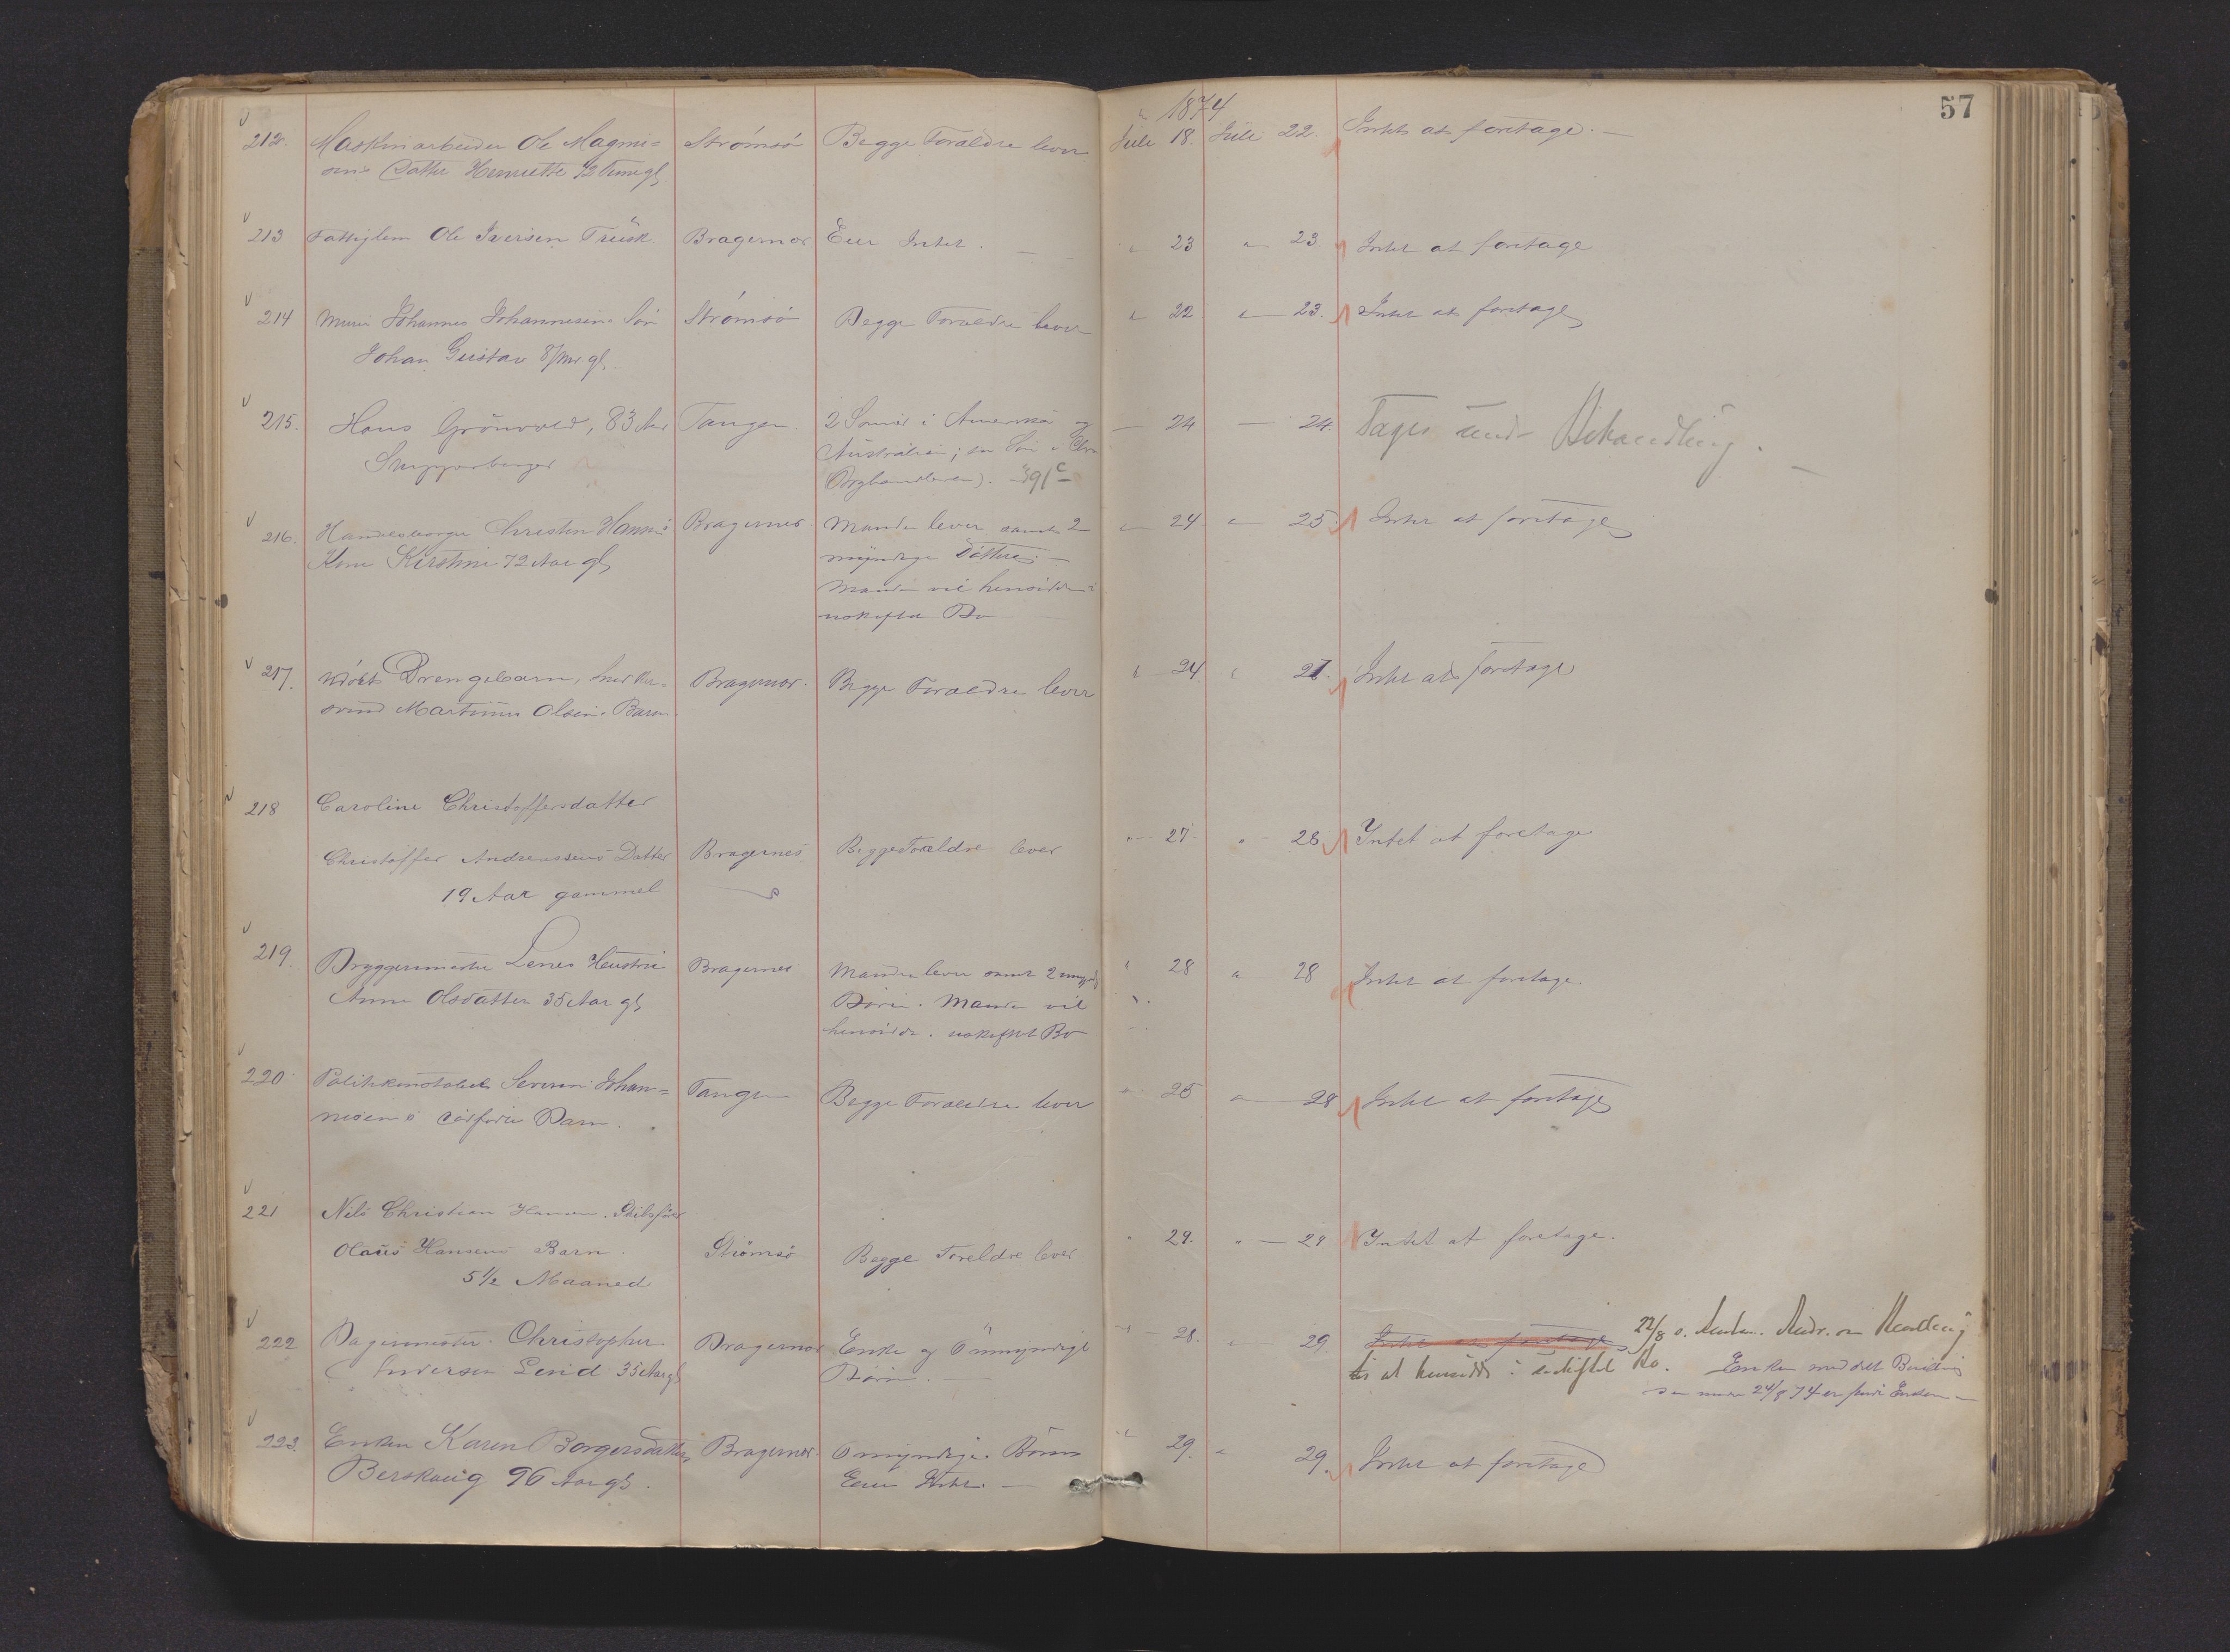 1874
57
212. Maskinarbeider Ole Magni= Strömsö Begge Forældre lever Juli 18. Juli 22. Intet at foretage. —
sens Datter Henriette 12 Timer gl
213 Fattiglem Ole Iversen Bragernes Eier Intet. " 23 " 23 Intet at foretage
214 Murer Johannes Johannesens Sön Strömsö Begge Forældre lever " 22 " 23. Intet at foretage
Johan Gustav 8 gl.
215. Hans Grönvold, 83 Aar Tangen 2 Sönner i Amerika og — 24 — 24. Tages under Behandling. —
Australien; en Sön i
216. Handelsborger Christen Hansens Bragernes Manden lever samt 2 " 24 " 25 Intet at foretage
Kone Kirstine 72 Aar gl myndige Döttre. —
Manden vil hensidde i
uskiftet Bo
217. Drengebarn, Bragernes. Begge Forældre lever " 24 " 27. Intet at foretage
svend Martinus Olsens Barn
218 Caroline Christoffersdatter
Christoffer Andreassens Datter Bragernes Begge Forældre lever " 27 " 28 Intet at foretage
19 Aar gammel
219. Bryggermester Hustru Bragernes Manden lever samt 2 " 28 " 28 Intet at foretage.
Anne Olsdatter 35 Aar gl Börn. Manden vil
hensidde i uskiftet Bo
220 Politikonstabel Severin Johan= Tangen Begge Forældre lever " 25 " 28 Intet at foretage
nesens dödfödte Barn.
221 Nils Christian Hansen. Skibsförer
Olaus Hansens Barn. Strömsö Begge Foreldre lever " 29. " — 29 Intet at foretage.
5 1/2 Maaned
222 Bagermester Christopher Bragernes Enke og 6 umyndige " 28. " 29 Intet at foretage 22/8
Andersen 35 Aar gl Börn. — til at hensidde i uskiftet Bo. Enken
24/8 74
223. Enken Karen Borgersdatter Bragernes. 6 myndige Börn " 29. " 29. Intet at foretage
Berskaug 96 Aar gl. Eier Intet. —